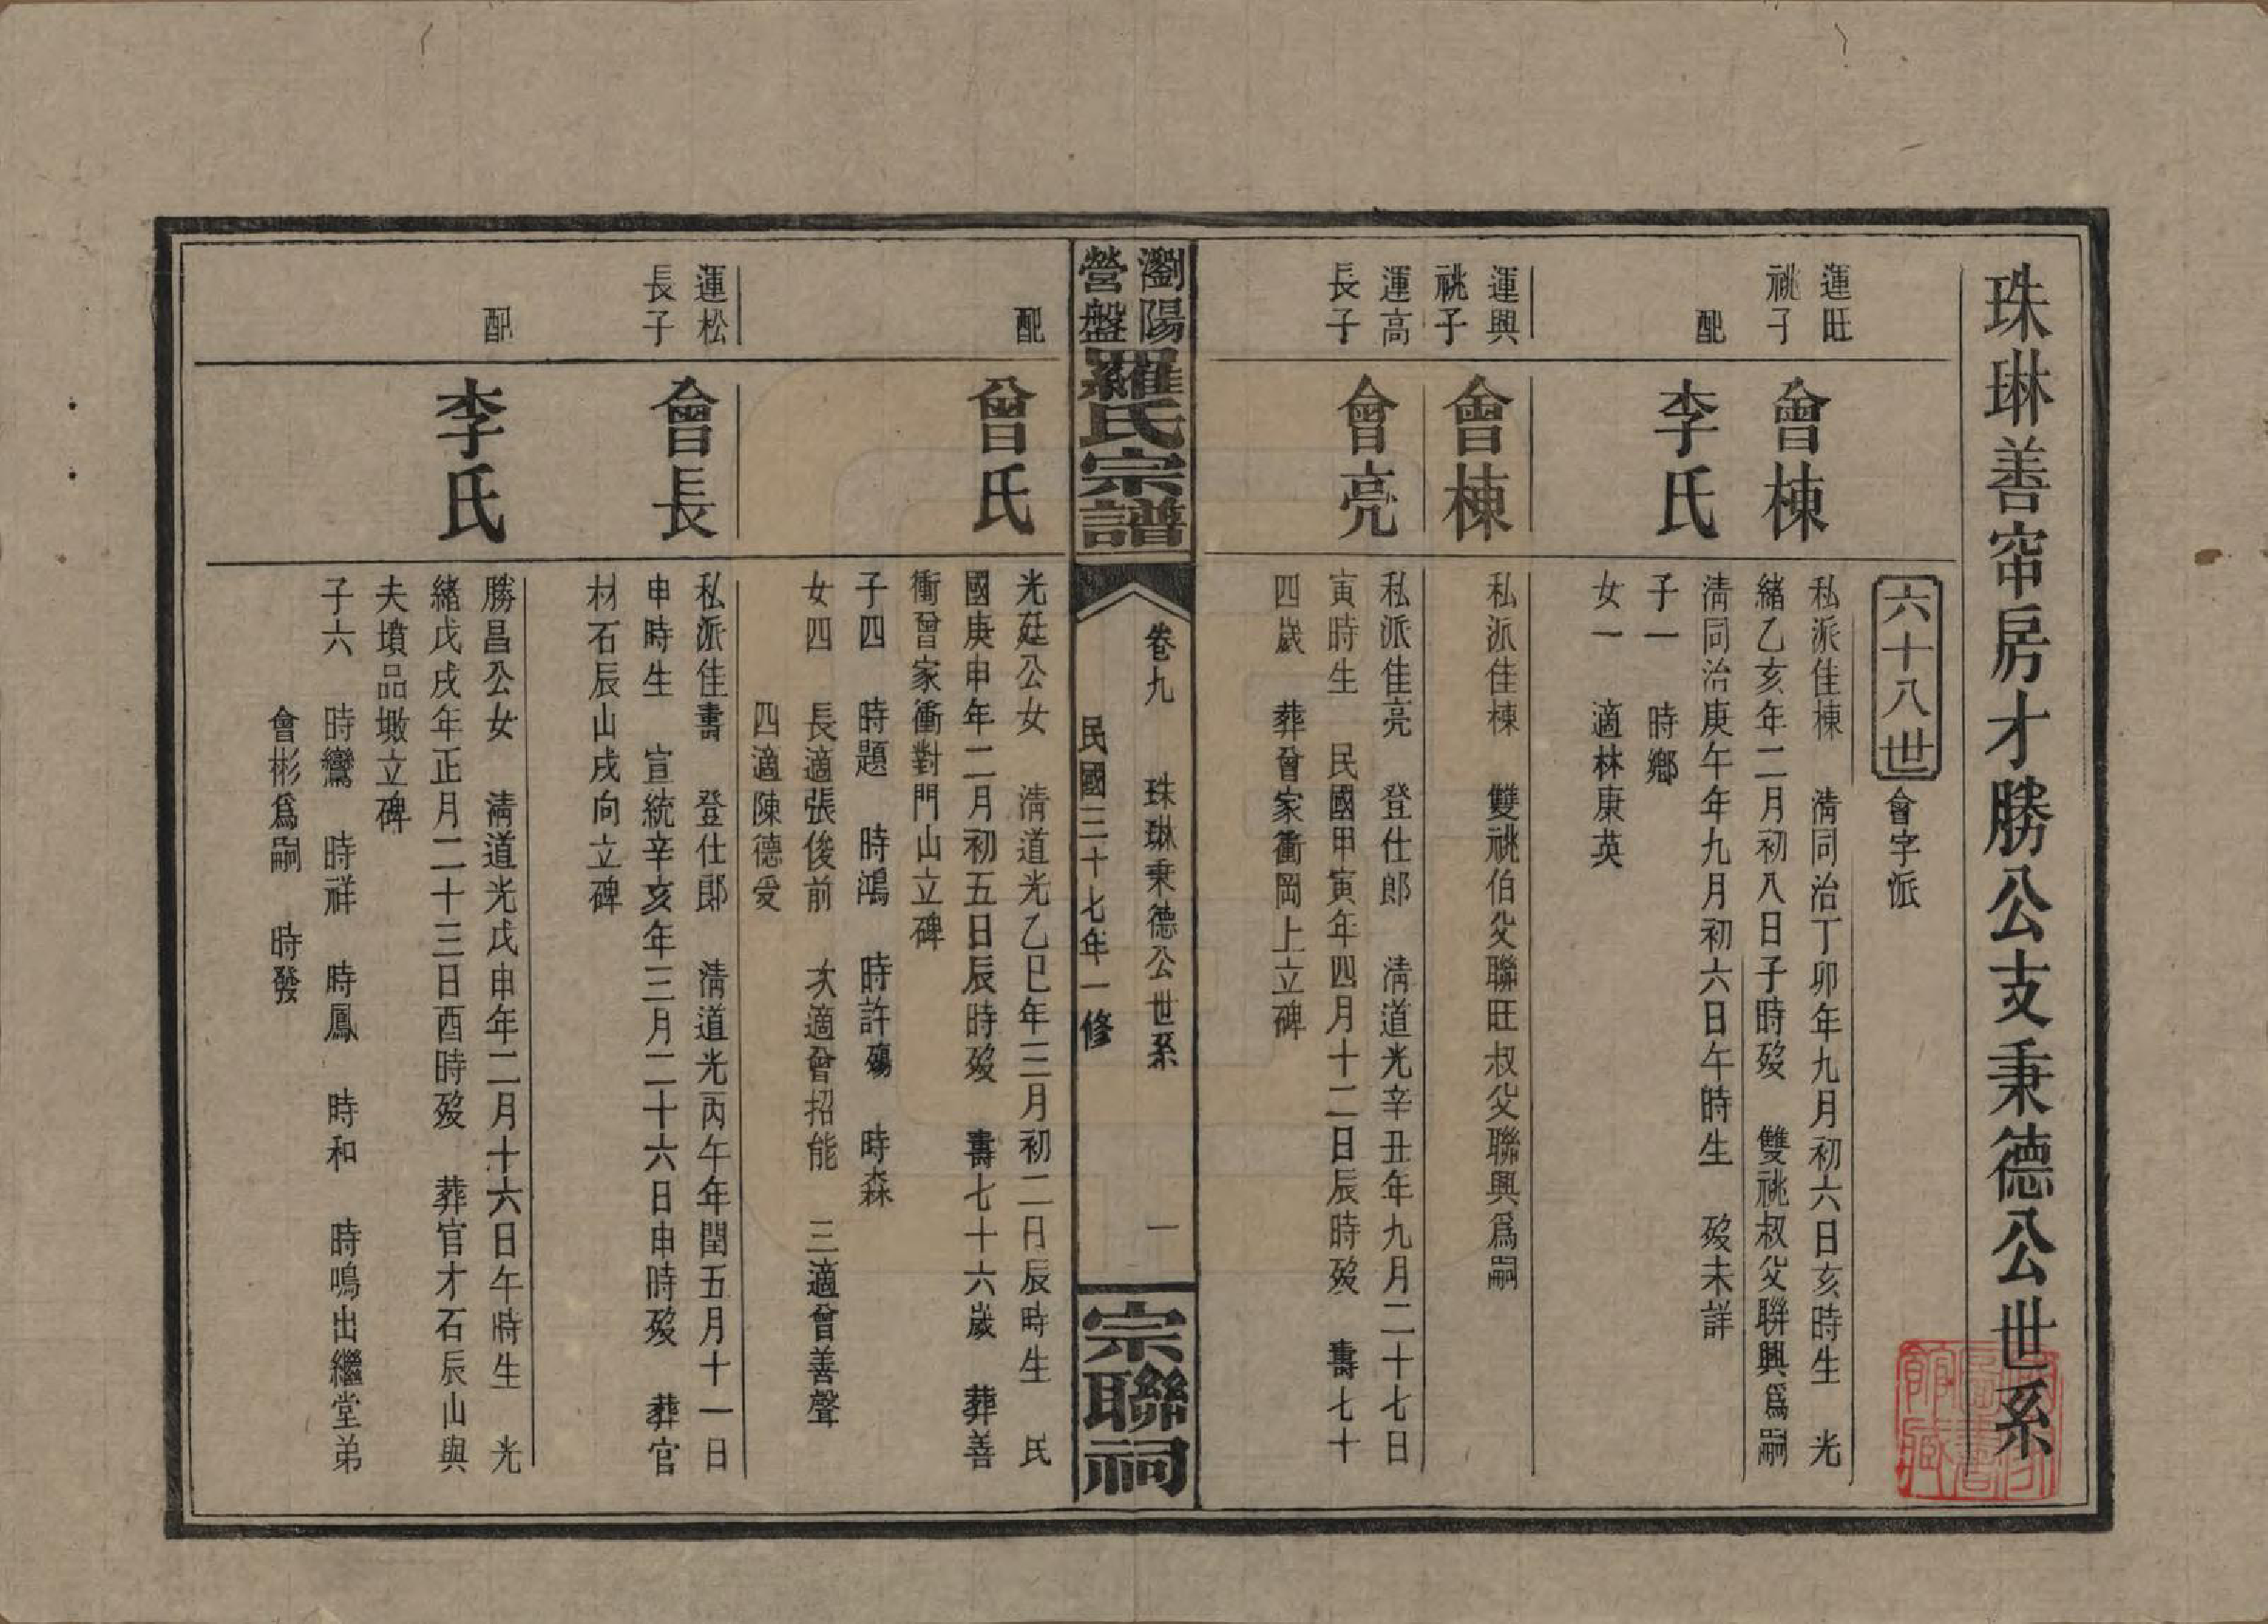 珠琳善帘房才勝公支秉德公世系
六十八世
會字派
運旺
祧子
會棟
私派佳棟 清同治丁卯年九月初六日亥時生 光
緒乙亥年二月初八日子時歿 雙祧叔父聯興爲嗣
配
李氏
清同治庚午年九月初六日午時生 歿未詳
子一 時鄉
女一 適林康英
運興
祧子
會棟
私派佳棟 雙祧伯父聯旺叔父聯興爲嗣
運高
長子
會亮
私派佳亮 登仕郎 清道光辛丑年九月二十七日
寅時生 民國甲寅年四月十二日辰時歿 壽七十
四歲 葬曾家衝岡上立碑
瀏陽
營盤
羅氏宗譜
卷九 珠琳秉德公世系 一
民國三十七年一修
宗聯祠
配
曾氏
光廷公女 清道光乙巳年三月初二日辰時生 民
國庚申年二月初五日辰時歿 壽七十六歲 葬善
衝曾家衝對門山立碑
子四 時題 時鴻 時許殤 時森
女四 長適張俊前 次適曾招能 三適曾善聲
四適陳德受
運松
長子
會長
私派佳書 登仕郎 清道光丙午年閏五月十一日
申時生 宣統辛亥年三月二十六日申時歿 葬官
材石辰山戌向立碑
配
李氏
勝昌公女 清道光戊申年二月十六日午時生 光
緒戊戌年正月二十三日酉時歿 葬官才石辰山與
夫墳品墩立碑
子六 時鸞 時祥 時鳳 時和 時鳴出繼堂弟
會彬爲嗣 時發